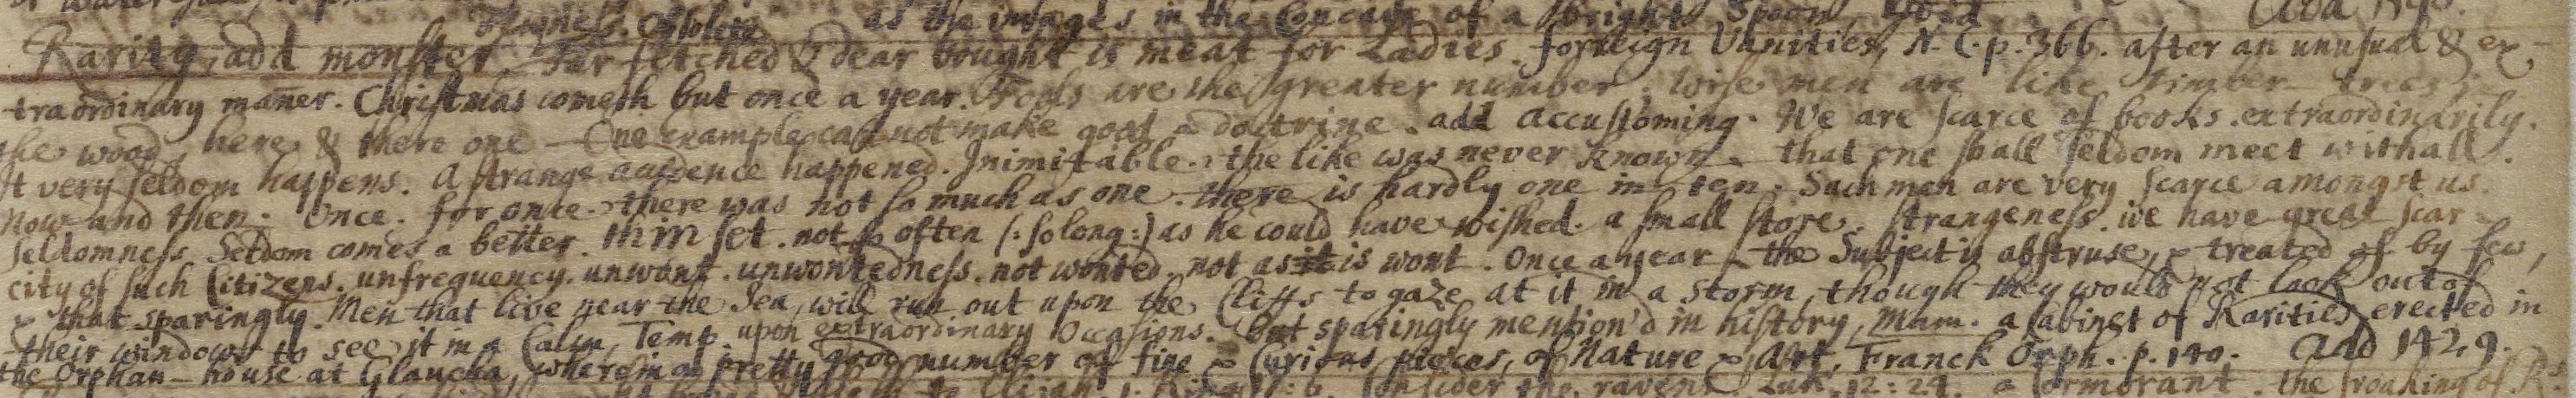 as the images in the Concave of a bright Spoon
Rarity, add monster. Far fetched & dear bought is meat for Ladies. forreign Vanities, N. C. p. 366. after an unusual & ex-
traordinary maner. Christmas cometh but once a year. Fools are the greater number: wise men are like timber-trees in
the wood, here & there one — One Example cannot make good a doctrine. add accustoming. We are scarce of books. extraordinarily.
It very seldom happens. A strange accidence happened. Inimitable. the like was never known. that one shall seldom meet withall.
Now and then. Once. for once. there was not so much as one. there is hardly one in ten. Such men are very scarce amongst us.
seldomness. Seldom comes a better. thin set. not so often (: so long :) as he could have wished. a small store. strangeness. we have great scar-
city of such Citizens. unfrequency. unwont. unwontedness. not wonted. not as it is wont. Once a year — the Subject is abstruse, & treated of by few,
& that sparingly. Men that live near the Sea, will run out upon the Cliffs to gaze at it in a storm, though they would not look out of
their windows to see it in a Calm, Temp. upon extraordinary Occasions. but sparingly mention'd in history, Mum. a Cabinet of Rarities erected in
the Orphan-house at Glaucha, wherein a pretty good number of fine & Curious pieces, of Nature & Art, Franck Orph. p. 140. Add 1429.
Consider the ravens. Luk. 12:24. a Cormorant. the croaking of